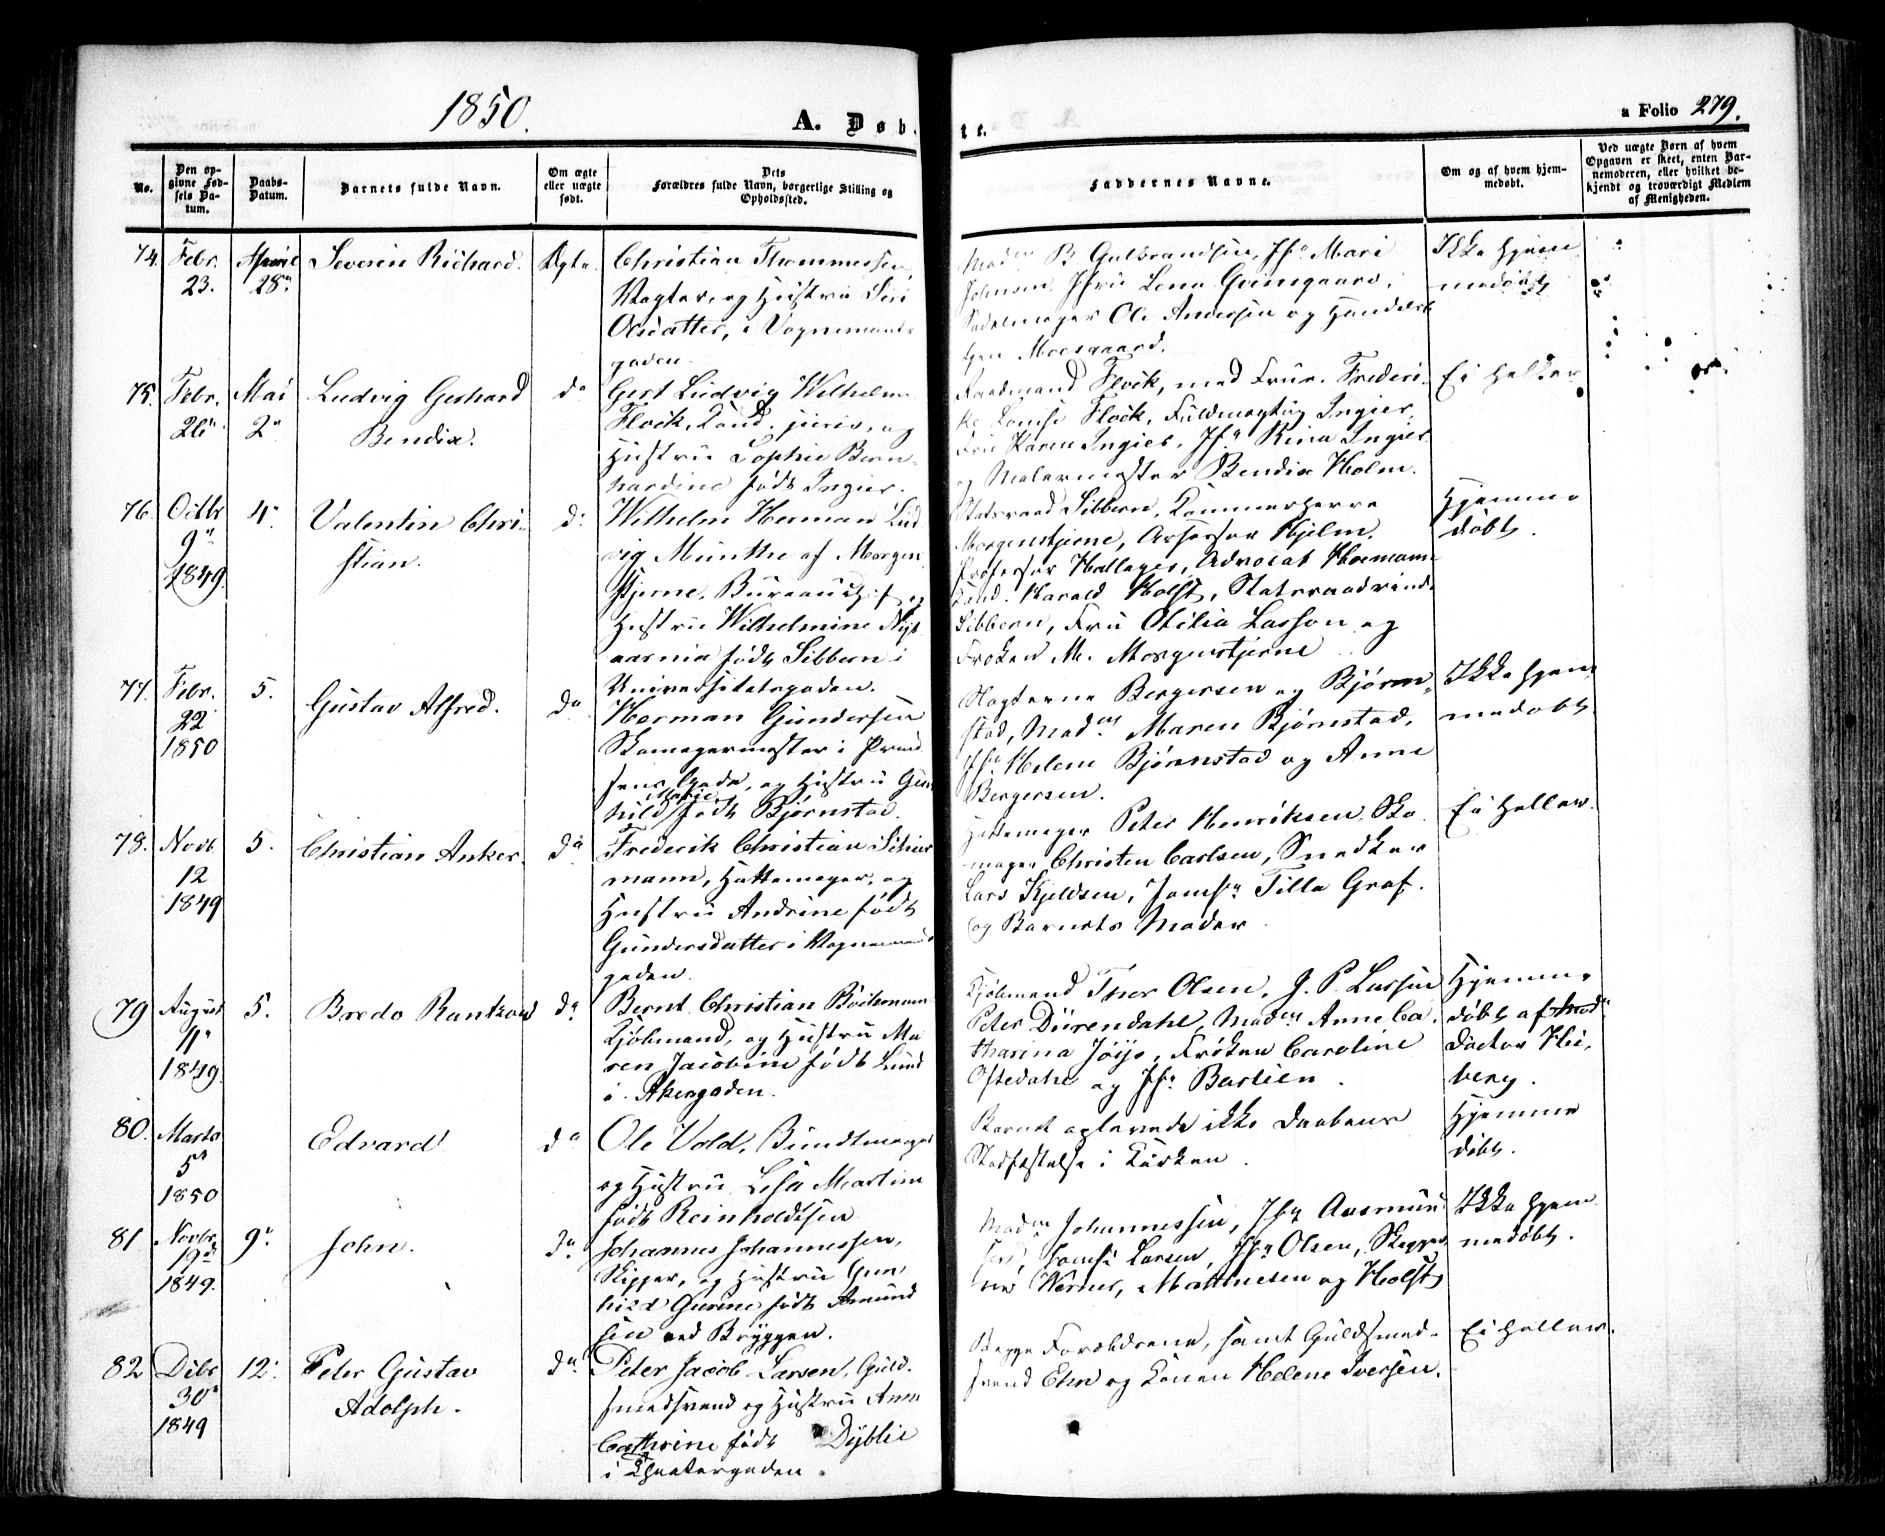 1850.
A. Døb-
te.
a Folio 279.
No.
Den op-
givne Fød-
sels Da-
tum.
Daabs-
Datum.
Barnets fulde Navn.
Om ægte
eller uægte
født.
Dets
Forældres fulde Navn, borgerlige Stilling og
Opholdssted.
Faddernes Navne.
Om og af hvem hjem-
medøbt.
Ved uægte Børn af hvem
Opgaven er skeet, enten Bar-
nemoderen, eller hvilket be-
kjendt og troværdigt Medlem
af Menigheden.
74. Febr. 23. April 28. Severin Richard. Ægte.
Christian Thommessen,
Vogter, og Hustru Siri
Olsdatter, i Vognmands-
gaden.
B. Gulbrandsen, Jfr Mari
Johnsen, Jfru Lena
Sadelmager Ole Andersen og
Moesgaard.
Ikke hjem-
medøbt
75. Febr. 26. Mai 2. Ludvig Gerhard
Bendix.
do
Gert Ludvig Wilhelm
Flock, Cand. juris, og
Hustru Sophie Bern-
hardine født Ingier.
Raadmand Flock, med Frue, Frederi-
ke Flock, Fuldmægtig Ingier,
Fru Karen Ingier, Jfr Rina Ingier
og Malermester Bendix Holm.
Ei heller
76. Octbr 9 1849. 4. Valentin Chri-
stian.
do
Wilhelm Herman Lud
vig Munthe af Morgen
stjerne, Bureauchef og
Hustru Wilhelmine
født Sibbern i
Universitetsgaden.
Statsraad Sibbern, Kammerherre
Morgenstjerne, Assessor Hjelm,
Professor Hallager, Advocat
Cand. Harald Holst, Statsraadinde
Sibbern, Fru Otilia Lasson og
Frøken M. Morgenstjerne
Hjemme
døbt.
77. Febr. 22 1850 5. Gustav Alfred. do
Herman Gundersen
Skomagermester i Prind
sens Gade, og Hustru Gun
hild Marie født Bjørnstad.
Slagterne Bergersen og Bjørn-
stad, Mad. Maren Bjørnstad,
Jfr Helene Bjørnstad og Anne
Bergersen.
Ikke hjem
medøbt.
78. Novb. 12 1849 5. Christian Anker. do
Frederik Christian
mann, Hattemager, og
Hustru Andrine født
Gundersdatter i Vognmands
gaden.
Hattemager Peter Henriksen, Sko
mager Christen Carlsen, Snedker
Lars Kjeldsen, Jomfr Tilla Graf.
og Barnets Moder
Ei heller.
79 August 11 1849. 5. Bredo Rantzow do
Bernt Christian
Kjøbmand, og Hustru Ma
ren Jacobine født Lund
i Akersgaden.
Kjøbmand Thor Olsen, J. P. Larsen
Peter Dürendahl, Mad Anne Ca
tharina Frøken Caroline
Oftedahl og Jfr Bastien.
Hjemme
døbt af
Doctor Hei-
berg.
80. Marts 5 1850 Edvard do
Ole Vold, Bundtmager
og Hustru Martine
født Reinholdtsen
Barnet oplevede ikke Daabens
Stadfæstelse i Kirken.
Hjemme
døbt.
81 Novbr. 19 1849. 9. John. do
Johannes Johannessen,
Skipper, og Hustru Gun
hild Gurine født Amund
sen ved Bryggen.
Mad Johannessen, Jfr Aasmund
sen, Jomfr Larsen, Jfr Olsen, Skipper
ne Werner, Matthiesen og Holst
Ikke hjem
medøbt.
82 Dcbr 30 1849 12. Peter Gustav
Adolph.
do
Peter Jacob Larsen, Guld-
smedsvend og Hustru Anne
Cathrine født Dyblie
i Theatergaden.
Begge Forældrene, samt Guldsmed-
svend Ehn og Konen Helene Iversen.
Ei heller.